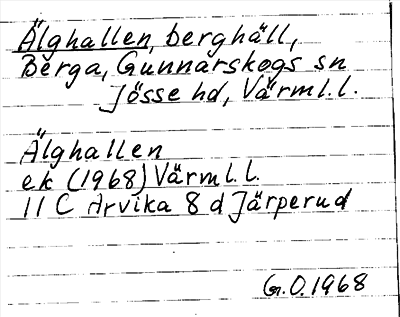 Älghallen, berghäll,
Berga, Gunnarskogs sn
Jösse hd, Värml.l.
Älghallen
ek (1968) Värml.l.
11 C Arvika 8 d Järperud
G.O.1968